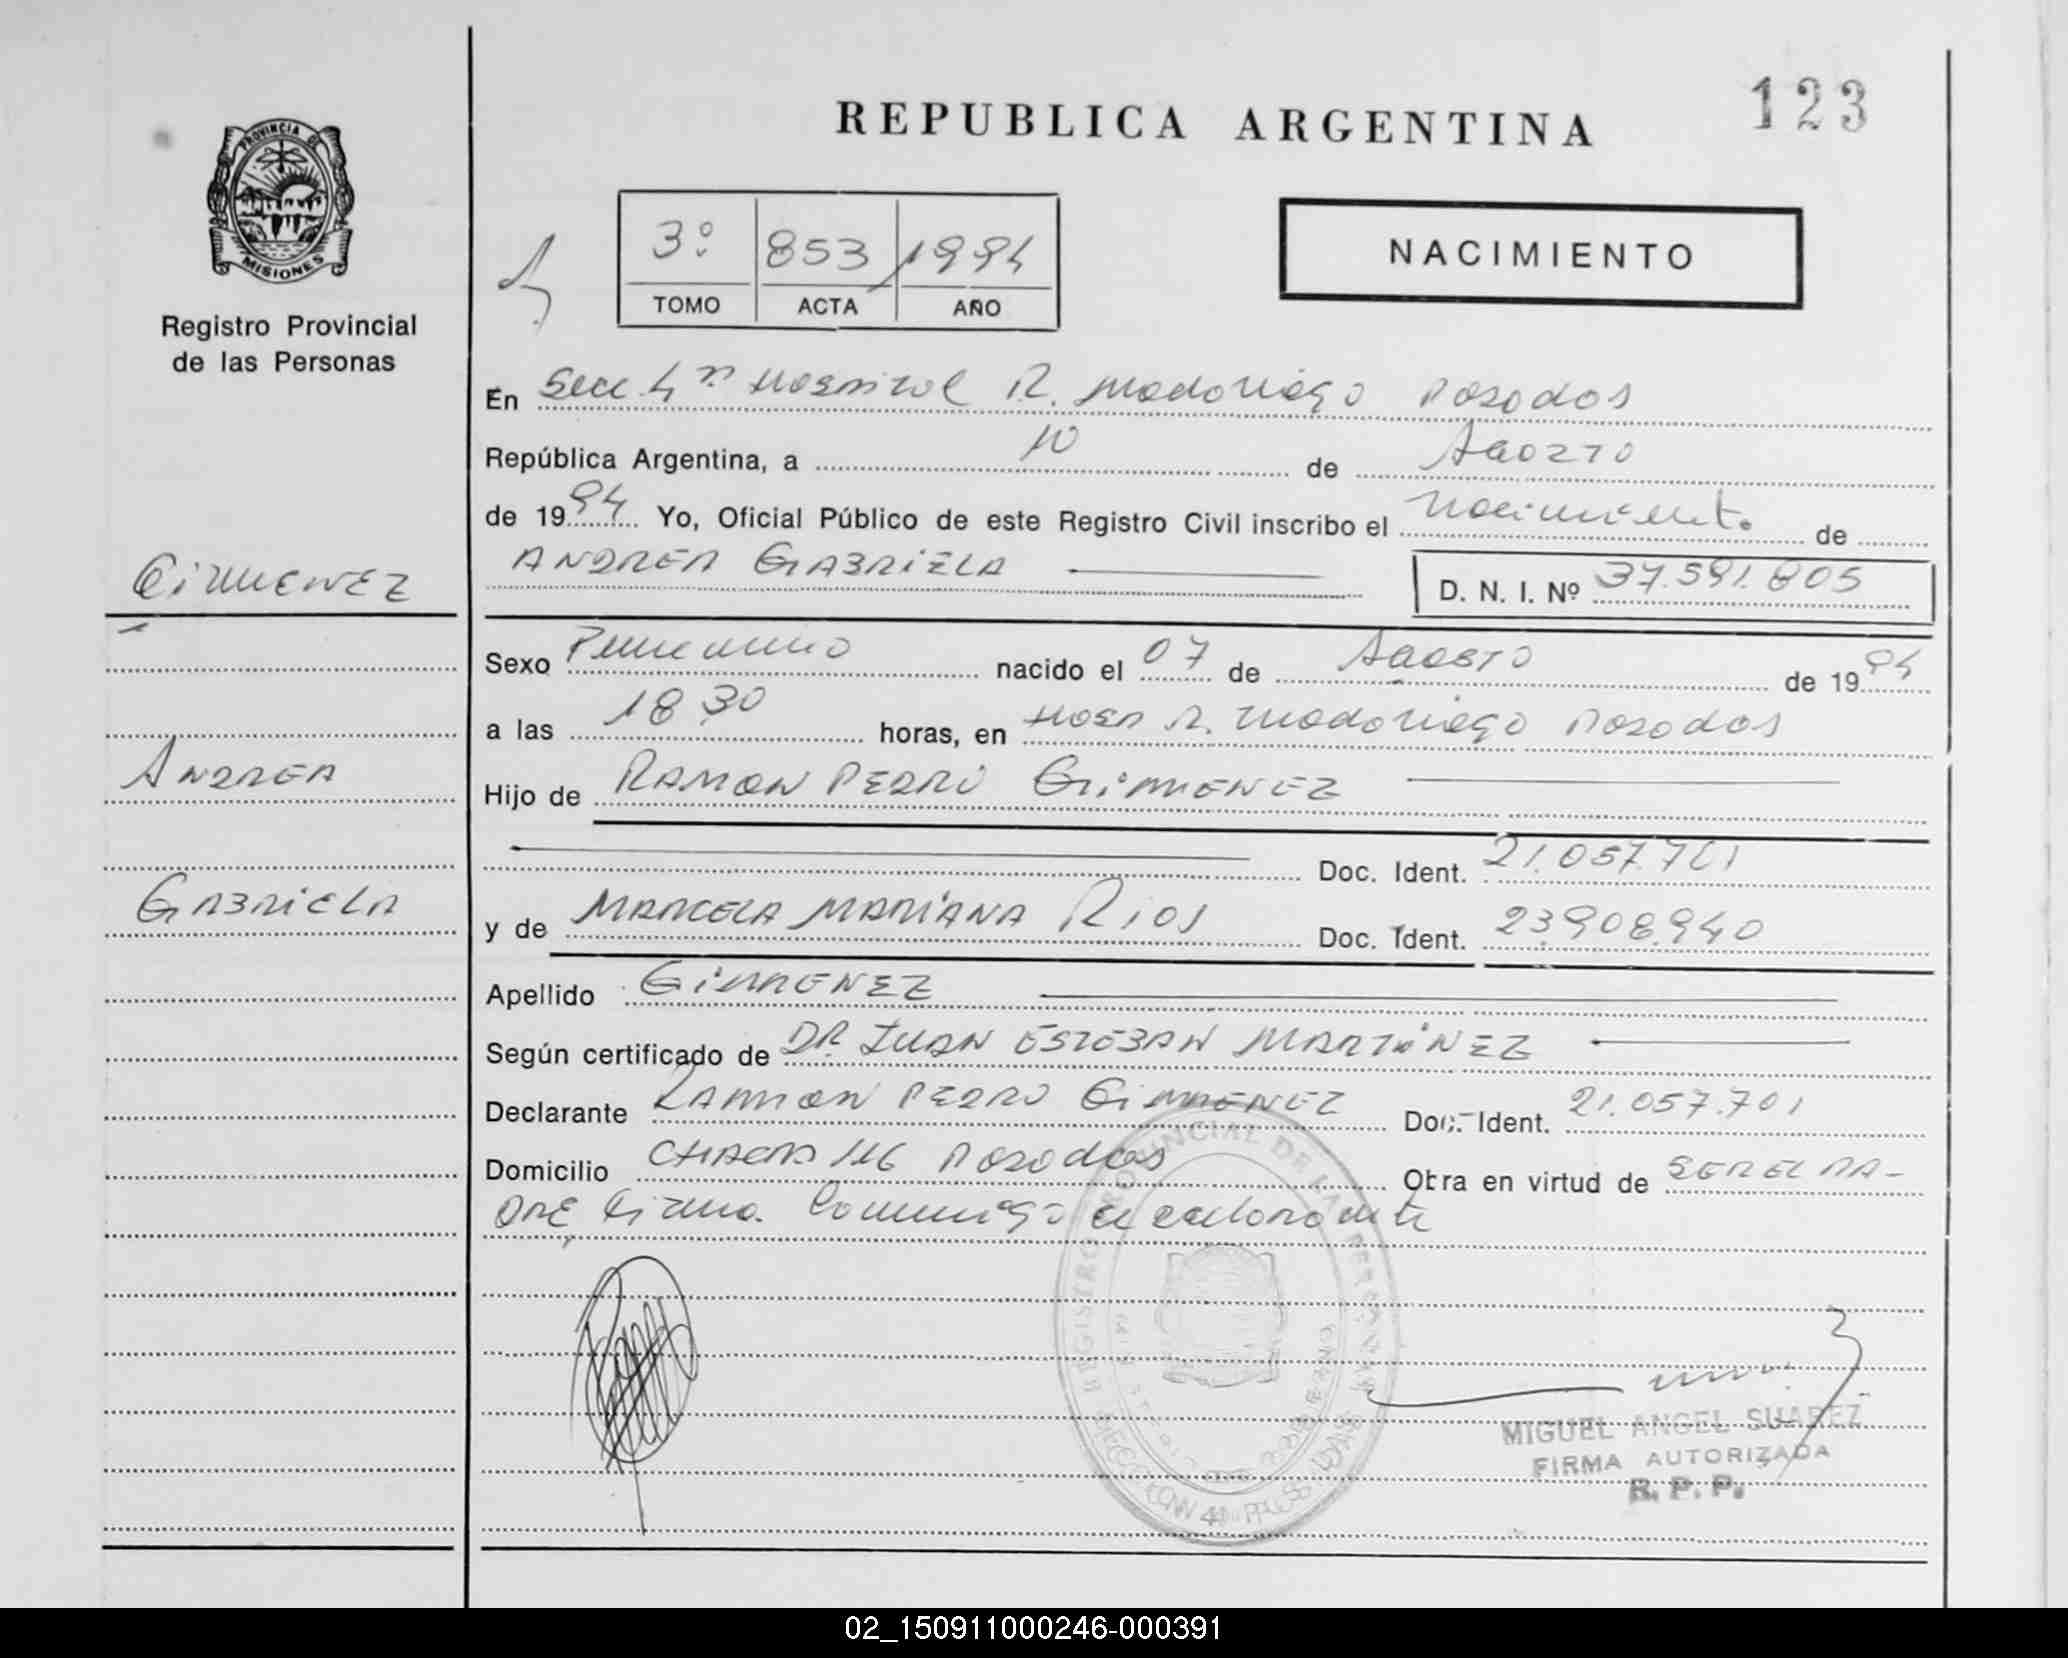 REPUBLICA ARGENTINA
123
PROVINCIA DE
MISIONES
Registro Provincial
de las Personas
3º 853 1994
TOMO ACTA AÑO
NACIMIENTO
En Secc 4ª Hospital R. Madariaga Posadas
República Argentina, a 10 de Agosto
de 1994 Yo, Oficial Público de este Registro Civil inscribo el nacimiento de
ANDREA GABRIELA D. N. I. Nº 37.591.805
GIMENEZ
Sexo Femenino nacido el 07 de Agosto de 1994
a las 18 30 horas, en Hosp R. Madariaga Posadas
ANDREA
Hijo de RAMON PEDRO GIMENEZ
Doc. Ident. 21.057.701
GABRIELA
y de MARCELA MARIANA RIOS Doc. Ident. 23.908.940
Apellido GIMENEZ
Según certificado de DR. JUAN ESTEBAN MARTINEZ
Declarante RAMON PEDRO GIMENEZ Doc. Ident. 21.057.701
Domicilio CHACRA 146 Posadas Obra en virtud de SER EL PA-
DRE Firma Conmigo el declarante
REGISTRO PROVINCIAL DE LAS PERSONAS
MIGUEL ANGEL SUAREZ
FIRMA AUTORIZADA
R. P. P.
02_150911000246-000391